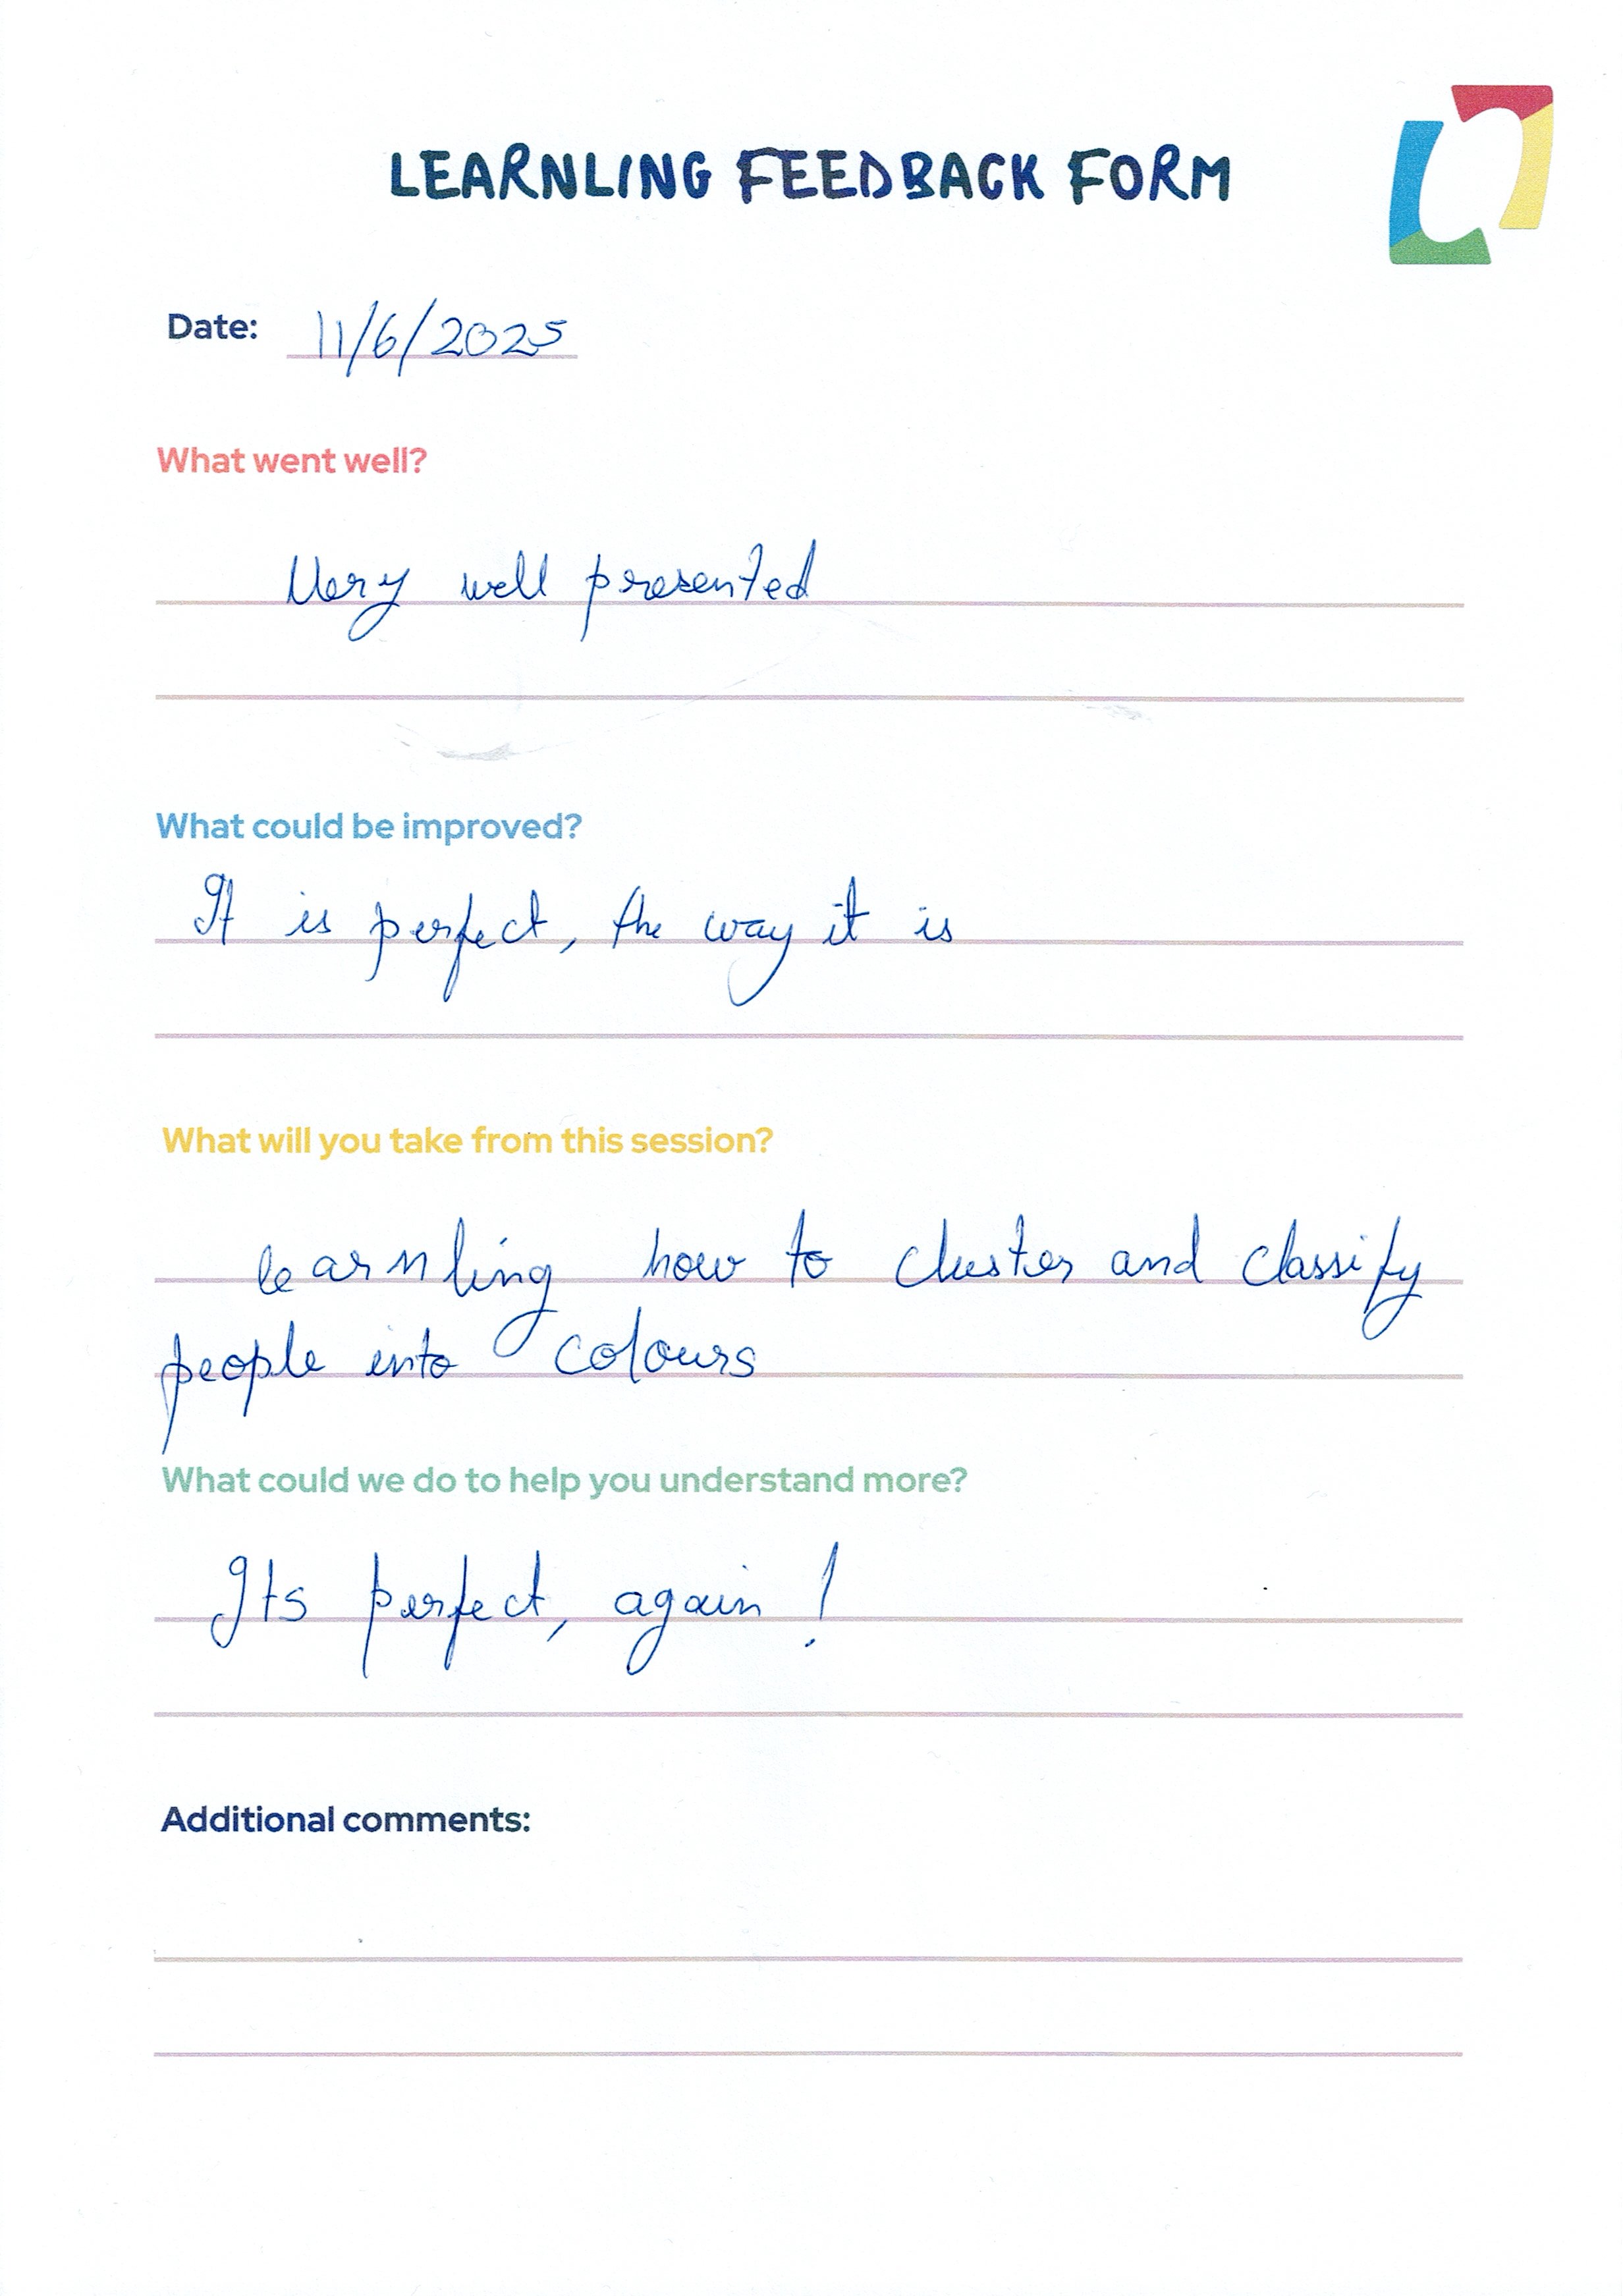 LEARNLING FEEDBACK FORM
Date: 11/6/2025
What went well?
Very well presented
What could be improved?
It is perfect, the way it is
What will you take from this session?
learnling how to cluster and classify
people into colours
What could we do to help you understand more?
Its perfect, again!
Additional comments: